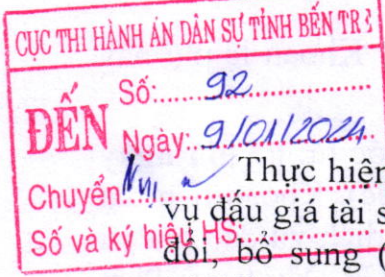 CỤC THI HÀNH ÁN DÂN SỰ TỈNH BẾN TR
ĐẾN
Số: 92
Ngày: 9/01/2024
Chuyển:
Số và ký hiệu HS:
Thực hiện
vụ đấu giá tài s
đổi, bổ sung (